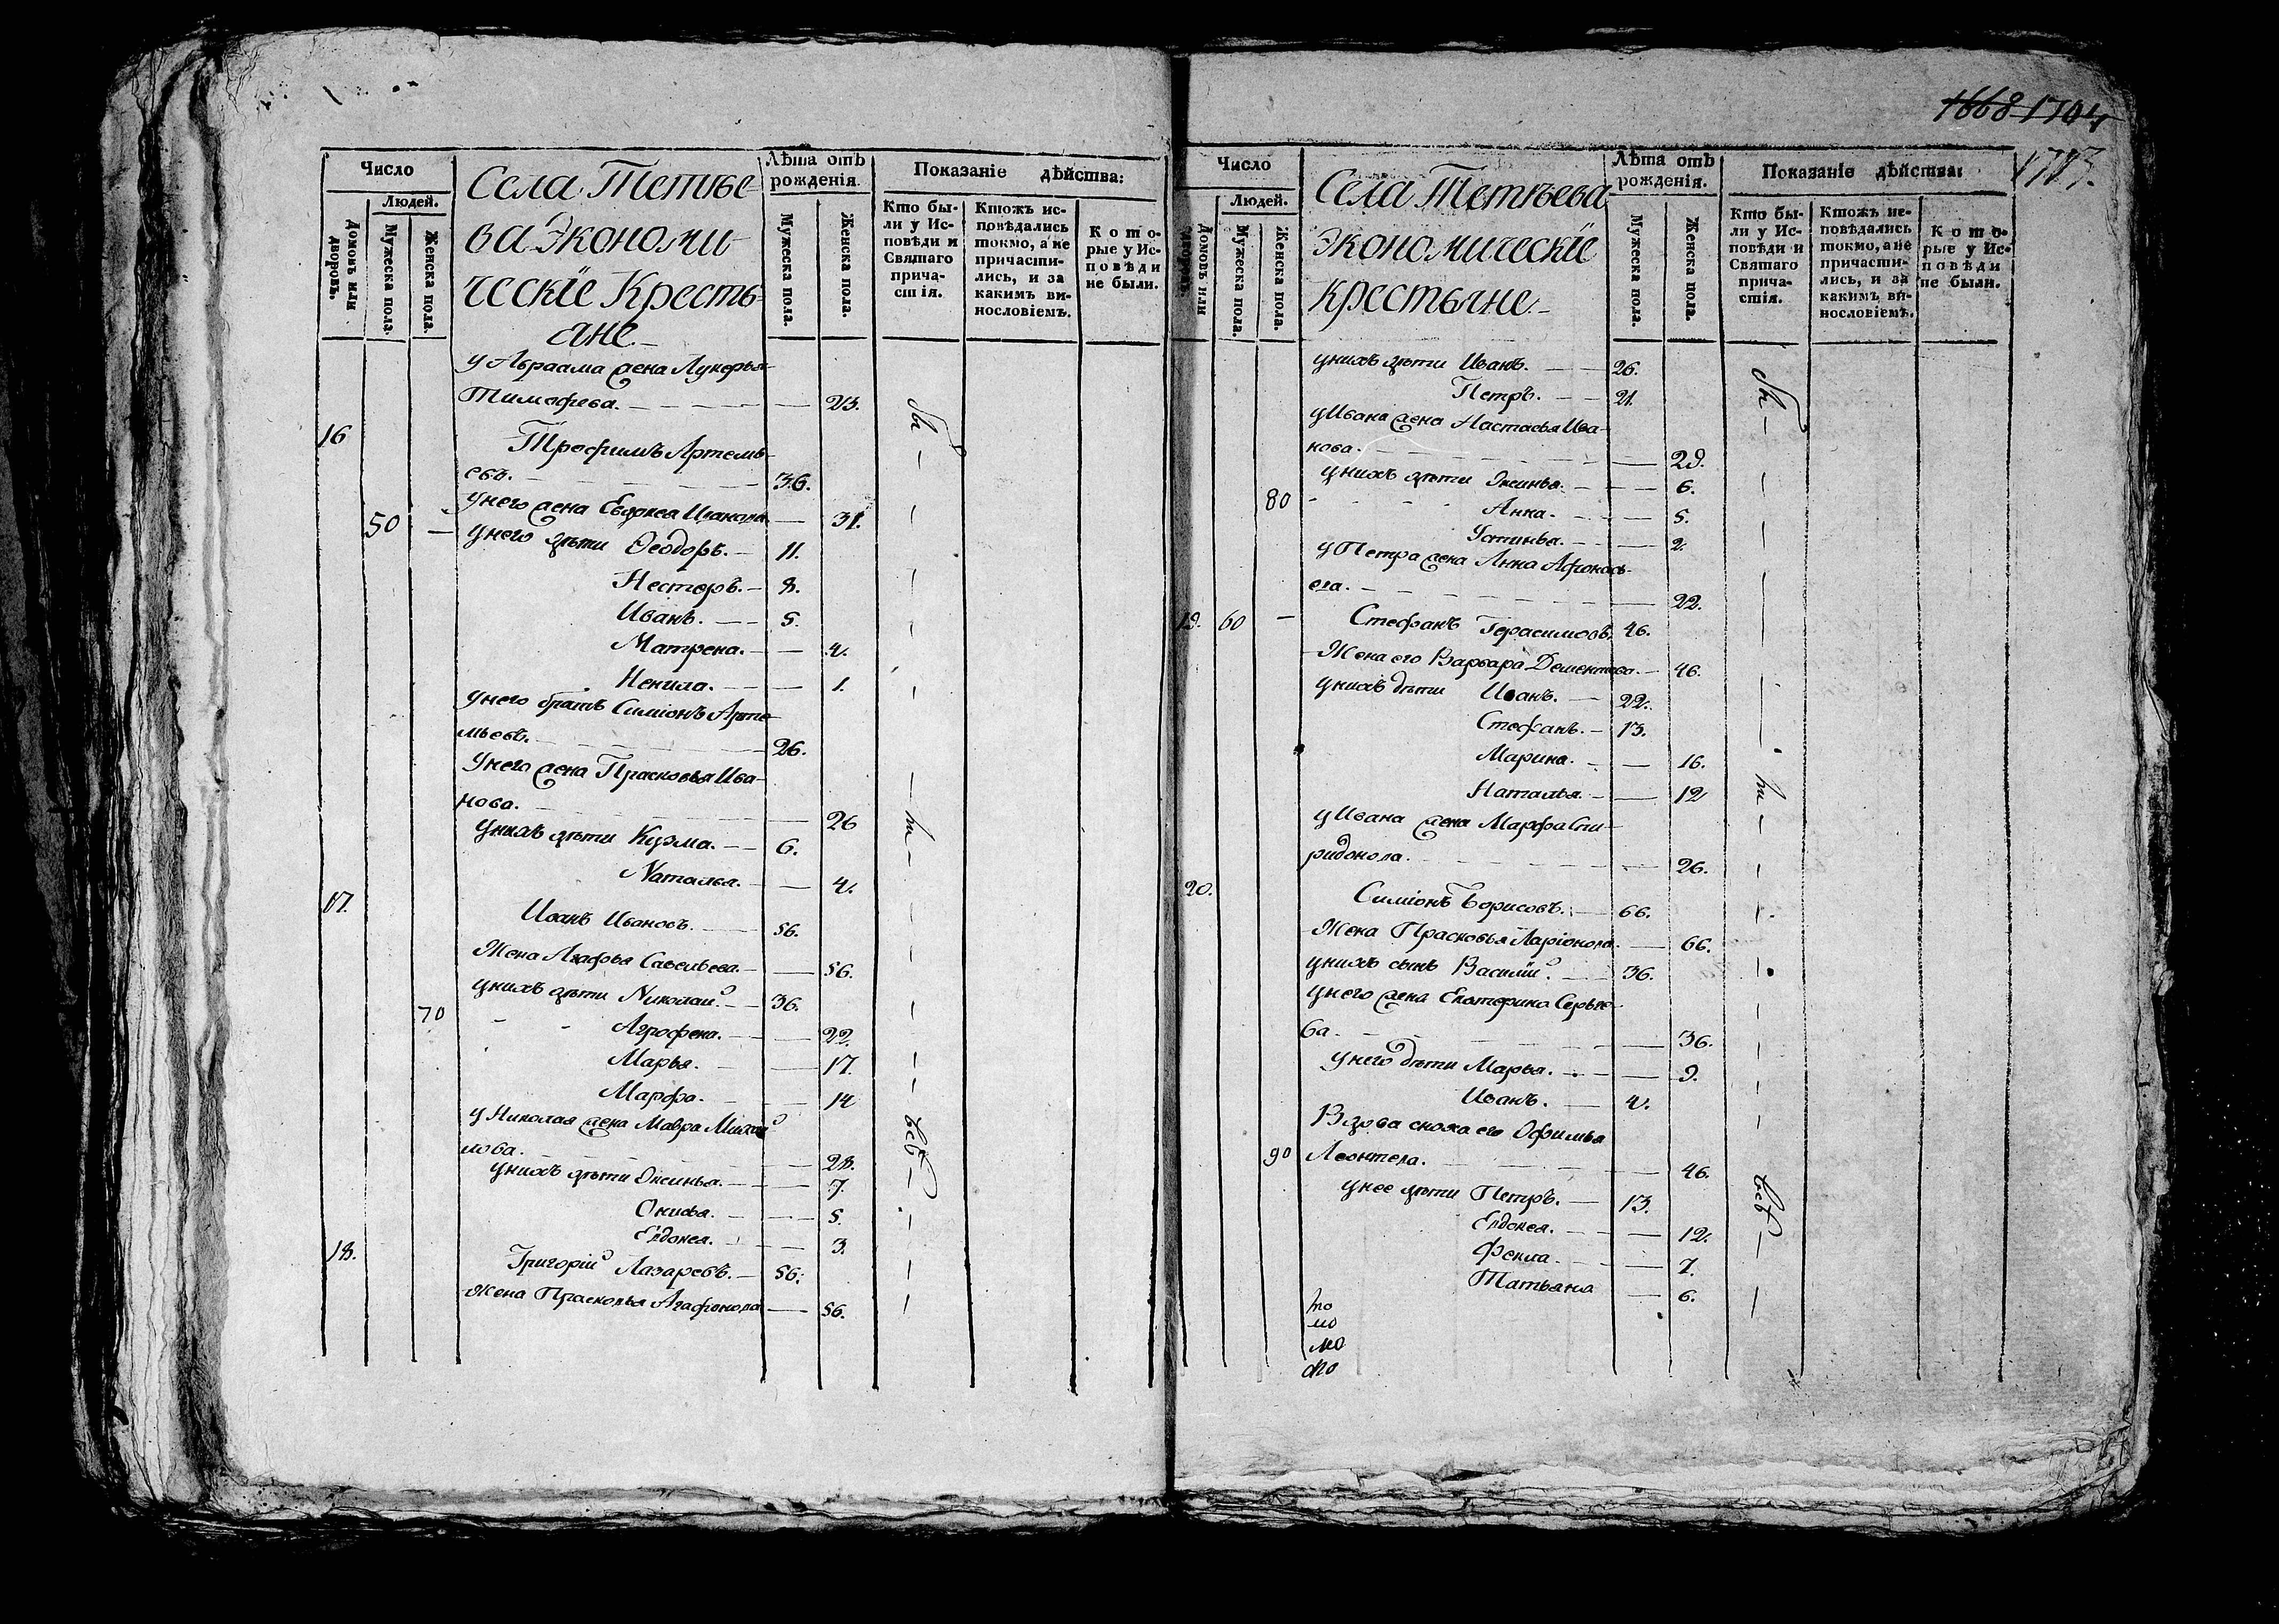 1668 1704
1713.
Число
Людей.
Домовъ или дворовъ.
Мужеска пола.
Женска пола.
Села Тетѣе-
ва Экономи-
ческiе Кресть-
яне
Лѣта отъ рожденiя.
Мужеска пола.
Женска пола.
Показанiе дѣйства:
Кто бы-
ли у Ис-
повѣди и
Святаго
прича-
стiя.
Ктожъ ис-
повѣдались
токмо, а не
причасти-
лись, и за
какимъ ви-
нословiемъ.
Кото-
рые у Ис-
повѣди
не были.
у Авраама жена Лукерья
Тимофева. 23.
16
Трофимъ Артемь-
евъ. 36.
у него жена Евдокея Иванова 31.
50
у него дѣти Феодоръ. 11.
Несторъ. 8.
Иванъ. 5.
Матрена. 4.
Ненила. 1.
у него братъ Симiонъ Арте-
мьевъ. 26.
у него жена Прасковья Ива-
нова. 26
у нихъ дѣти Кузма. 6.
Наталья. 4.
17.
Иванъ Ивановъ. 56.
Жена Агафья Савельева. 56.
у нихъ дѣти Николай. 36.
70
Агрофена. 22.
Марья. 17.
Марфа. 14
у Николая жена Мавра Михаи
лова. 28.
у нихъ дѣти Оксинья. 7.
Окилья. 5.
Евдокея. 3.
18.
Григорiй Лазаревъ. 56.
Жена Прасковья Агафонова 56.
Число
Людей.
Домовъ или дворовъ.
Мужеска пола.
Женска пола.
Села Тетѣева
Экономическiе
Крестьяне
Лѣта отъ рожденiя.
Мужеска пола.
Женска пола.
Показанiе дѣйства:
Кто бы-
ли у Ис-
повѣди и
Святаго
прича-
стiя.
Ктожъ ис-
повѣдались
токмо, а не
причасти-
лись, и за
какимъ ви-
нословiемъ.
Кото-
рые у Ис-
повѣди
не были.
у нихъ дѣти Иванъ. 26.
Петръ. 21.
у Ивана жена Настасья Ива-
нова. 29.
у нихъ дѣти Оксинья. 6.
80
Анна. 5.
Устинья. 2.
у Петра жена Анна Афонась-
ева. 22.
19. 60
Стефанъ Герасимовъ. 46.
Жена его Варвара Дементева 46.
у нихъ дѣти Иванъ. 22.
Стефанъ. 13.
Марина. 16.
Наталья. 12
у Ивана жена Марфа Спи-
ридонова. 26.
20.
Симiонъ Борисовъ. 66.
Жена Прасковья Ларiонова. 66.
у нихъ сынъ Василiй. 36.
у него жена Екатерина Сергѣе-
ва. 36.
у него дѣти Марья. 9.
Иванъ. 4.
Вдова сноха его Офимья
90
Леонтева. 46.
у нее дѣти Петръ. 13.
Евдокея. 12.
Фекла. 7.
Татьяна 6.